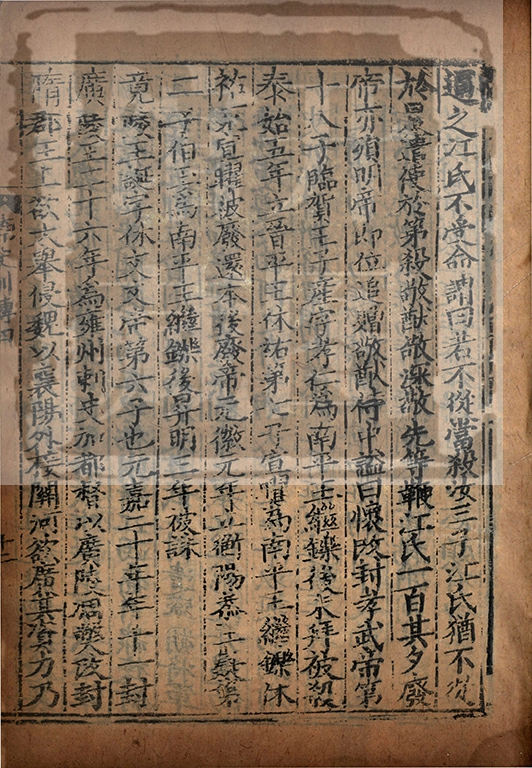 逼之江氏不受命謂曰若不從當殺汝三子江氏猶不從
於是遣使於第殺敬猷敬深敬先等鞭江氏一百其夕廢
帝亦殞明帝即位追贈敬猷侍中謚曰懷改封孝武帝第
十八子臨賀王子產字孝仁為南平王繼鑠後未拜被殺
泰始五年立晉平王休祐第七子宣曜為南平王繼鑠休
祐死宣曜被廢還本後廢帝元徽元年立衡陽恭王嶷第
二子伯玉為南平王繼鑠後昇明三年被誅
竟陵王誕字休文文帝第六子也元嘉二十年年十一封
廣陵王二十六年為雍州刺史加都督以廣陵彫弊改封
隋郡王上欲大舉侵魏以襄陽外接關河欲廣其資力乃